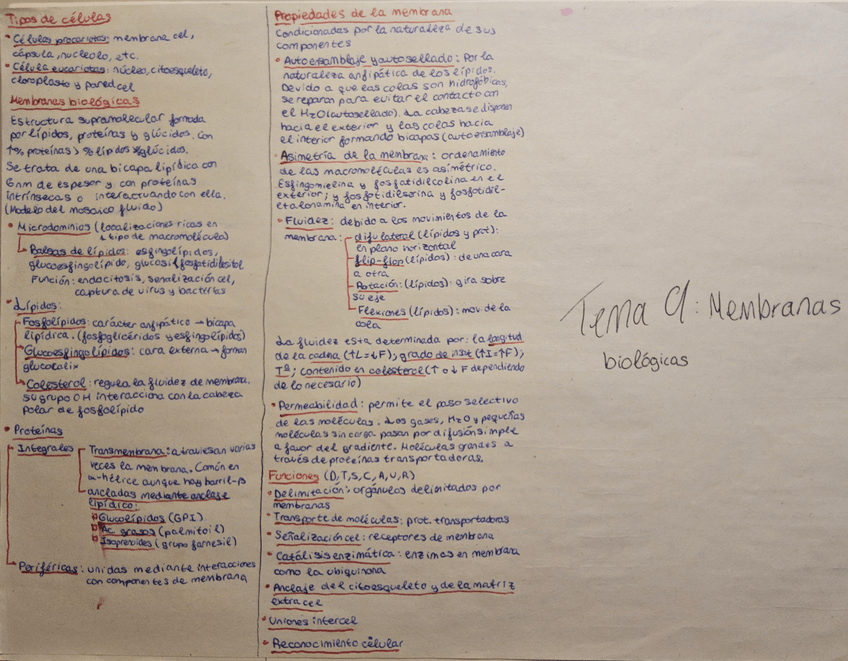 Tipos de células
• Células procariotas: membrana cel,
cápsula, nucleolo, etc.
• Célula eucariotas: núcleo, citoesqueleto,
cloroplasto y pared cel
Membranas biológicas
Estructura supramolecular formada
por lípidos, proteínas y glúcidos. Con
↑% proteínas > % lípidos > % glúcidos.
Se trata de una bicapa lipídica con
6nm de espesor y con proteínas
intrínsecas o interactuando con ella.
(Modelo del mosaico fluido)
• Microdominios (localizaciones ricas en
1 tipo de macromolécula)
Balsas de lípidos: esfingolípidos,
glucoesfingolípido, glucosilfosfatidilositol
Función: endocitosis, señalización cel,
captura de virus y bacterias
• Lípidos:
Fosfolípidos: carácter anfipático → bicapa
lipídica. (fosfoglicéridos y esfingolípidos)
Glucoesfingolípidos: cara externa → forman
glucocalix
Colesterol: regula la fluidez de membrana.
su grupo OH interacciona con la cabeza
polar de fosfolípido
• Proteínas
Integrales
Transmembrana: atraviesan varias
veces la membrana. Común en
α-hélice aunque hay barril-β
ancladas mediante anclaje
lipídico:
Glucolípidos (GPI)
Ac grasos (palmitoil)
Isoprenoides (grupo farnesil)
Periféricas: unidas mediante interacciones
con componentes de membrana
Propiedades de la membrana
Condicionadas por la naturaleza de sus
componentes
• Autoensamblaje y autosellado: Por la
naturaleza anfipática de los lípidos.
Devido a que las colas son hidrofóbicas,
se reparan para evitar el contacto con
el H2O (autosellado). La cabeza se disponen
hacia el exterior y las colas hacia
el interior formando bicapas (autoensamblaje)
• Asimetría de la membrana: ordenamiento
de las macromoléculas es asimétrico.
Esfingomielina y fosfatidilcolina en el
exterior; y fosfotidilserina y fosfotidil-
etalonamina en interior.
• Fluidez: debido a los movimientos de la
membrana:
difu lateral (lípidos y prot):
en plano horizontal
flip-flop (lípidos): de una cara
a otra
Rotación: (lípidos): gira sobre
su eje
Flexiones (lípidos): mov. de la
cola
La fluidez esta determinada por: la longitud
de la cadena (↑L=↓F); grado de inst (↑I=↑F);
Tª; contenido en colesterol (↑ o ↓ F dependiendo
de lo necesario)
• Permeabilidad: permite el paso selectivo
de las moléculas. Los gases, H2O y pequeñas
moléculas sin carga pasan por difusión simple
a favor del gradiente. Moléculas grandes a
través de proteínas transportadoras.
Funciones (D,T,S,C,A,U,R)
• Delimitación: orgánulos delimitados por
membranas
• Transporte de moléculas: prot. transportadoras
• Señalización cel: receptores de membrana
• Catálisis enzimática: enzimas en membrana
como la ubiquinona
• Anclaje del citoesqueleto y de la matriz
extracel
• Uniones intercel
• Reconocimiento celular
Tema 9: Membranas
biológicas